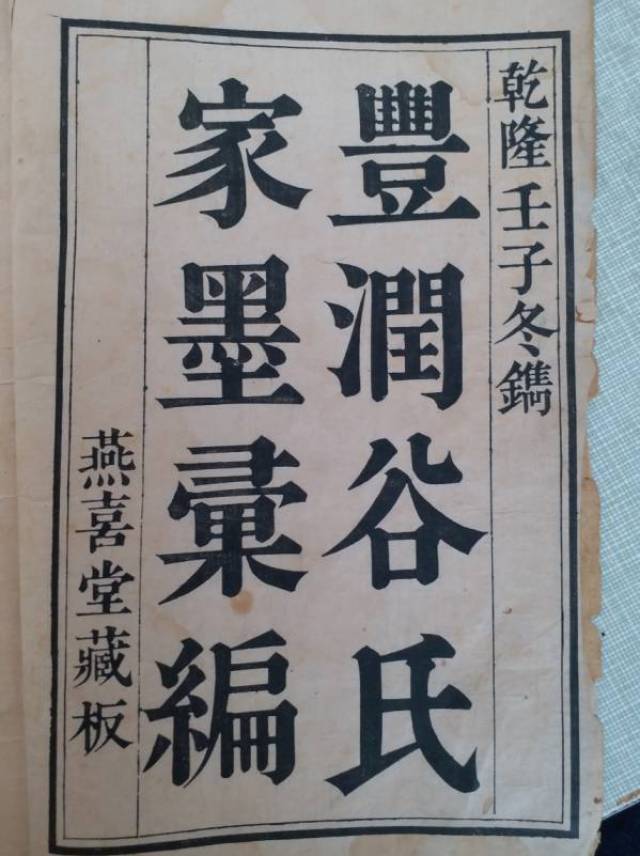 乾隆壬子冬鐫
豐潤谷氏
家墨彙編
燕喜堂藏板